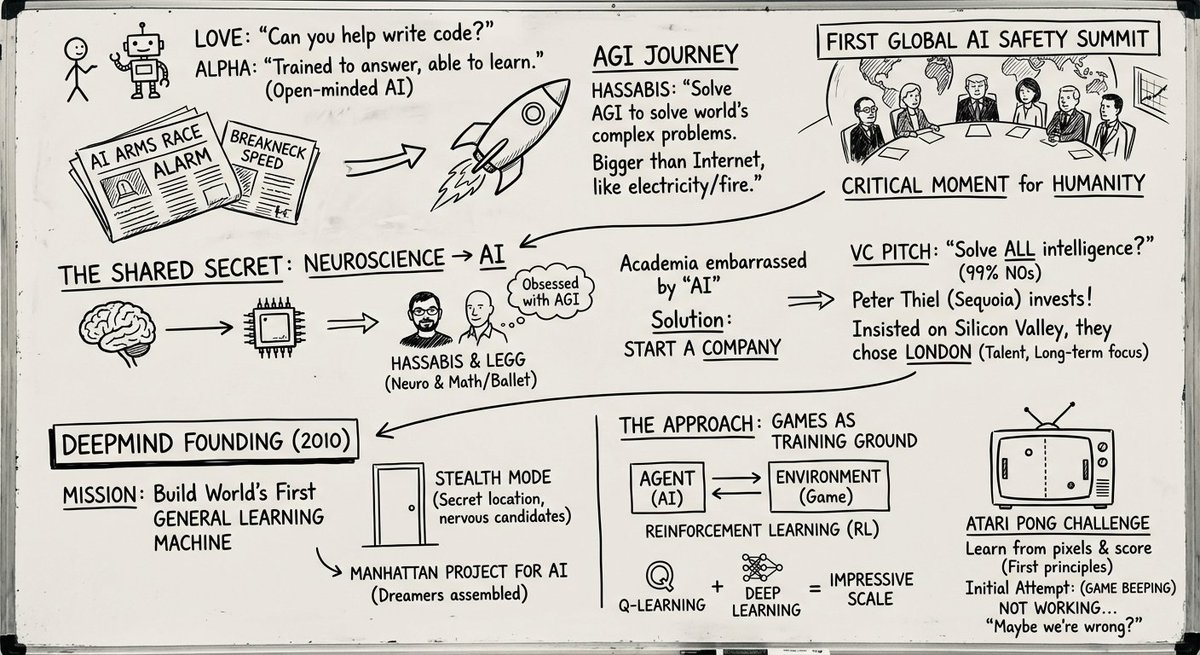 LOVE: “Can you help write code?”
ALPHA: “Trained to answer, able to learn.”
(Open-minded AI)
AI ARMS RACE
ALARM
BREAKNECK
SPEED
AGI JOURNEY
HASSABIS: “Solve
AGI to solve world’s
complex problems.
Bigger than Internet,
like electricity/fire.”
FIRST GLOBAL AI SAFETY SUMMIT
CRITICAL MOMENT for HUMANITY
THE SHARED SECRET: NEUROSCIENCE → AI
Obsessed
with AGI
HASSABIS & LEGG
(Neuro & Math/Ballet)
Academia embarrassed
by “AI”
Solution:
START A COMPANY
VC PITCH: “Solve ALL intelligence?”
(99% NOs)
Peter Thiel (Sequoia) invests!
Insisted on Silicon Valley, they
chose LONDON (Talent, Long-term focus)
DEEPMIND FOUNDING (2010)
MISSION: Build World’s First
GENERAL LEARNING
MACHINE
STEALTH MODE
(Secret location,
nervous candidates)
MANHATTAN PROJECT FOR AI
(Dreamers assembled)
THE APPROACH: GAMES AS
TRAINING GROUND
AGENT
(AI)
ENVIRONMENT
(Game)
REINFORCEMENT LEARNING (RL)
Q
Q-LEARNING
+
DEEP
LEARNING
= IMPRESSIVE
SCALE
ATARI PONG CHALLENGE
Learn from pixels & score
(First principles)
Initial Attempt: (GAME BEEPING)
NOT WORKING...
“Maybe we’re wrong?”